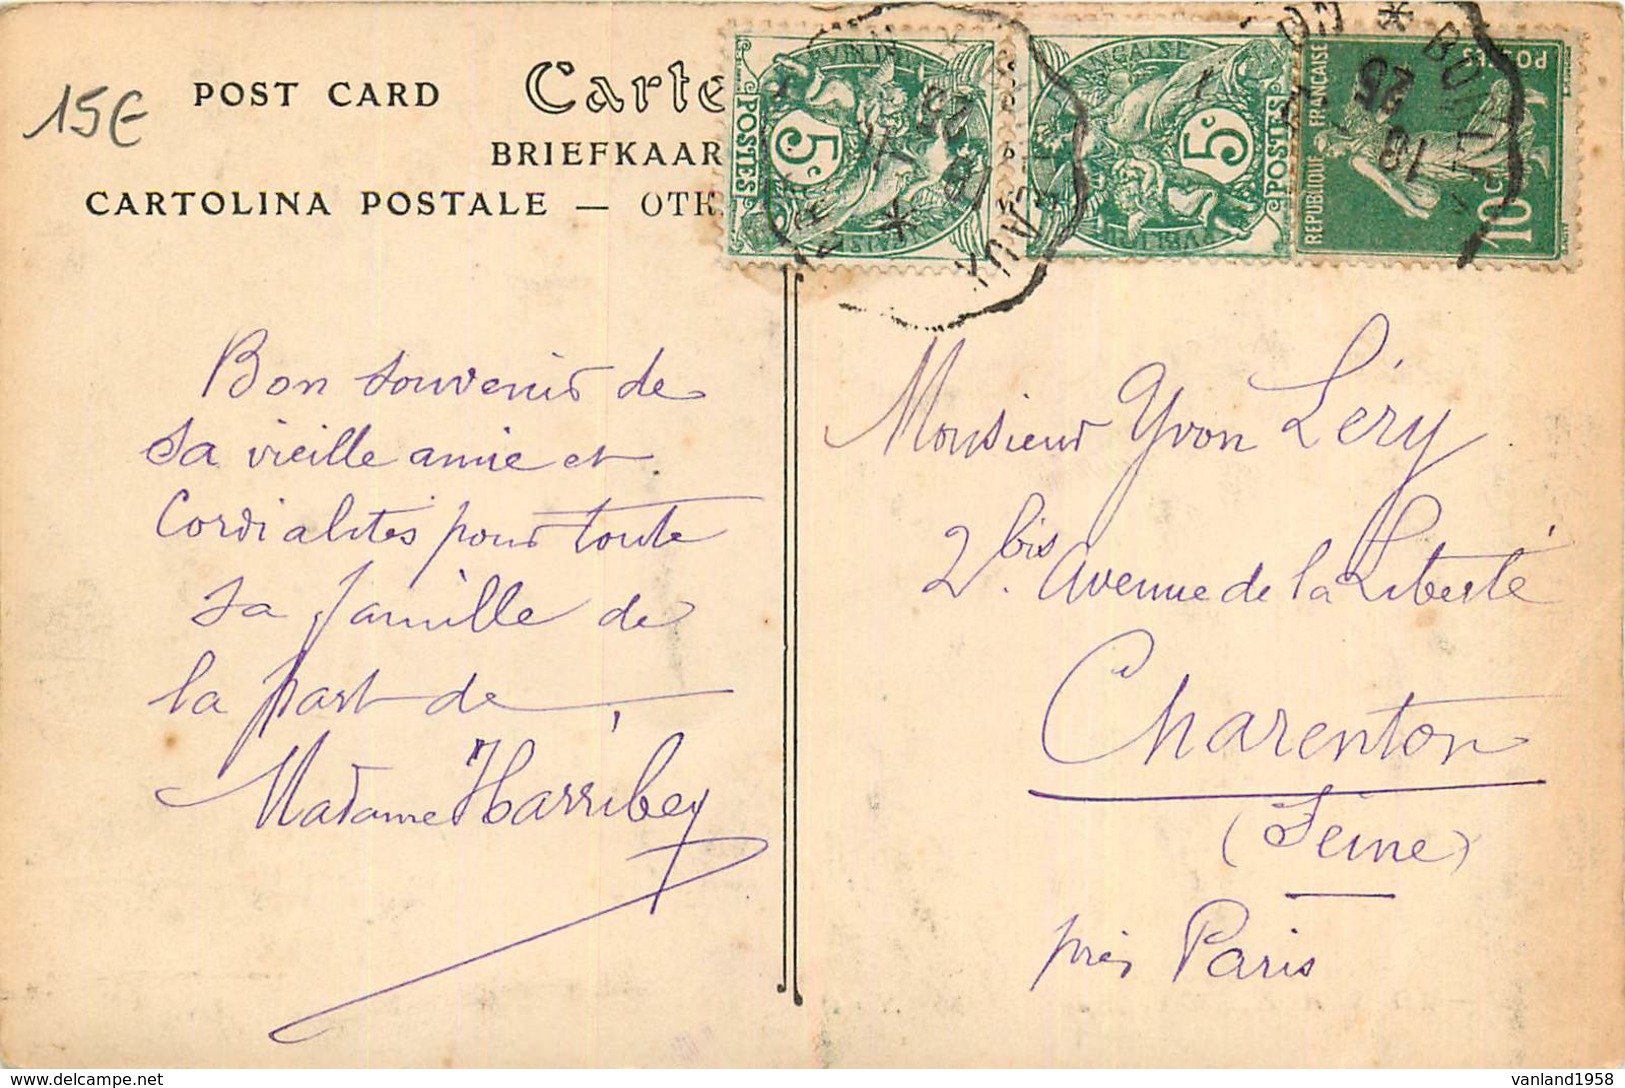 15€
POST CARD
Carte
BRIEFKAAR
CARTOLINA POSTALE —
POSTES
5c
5c
POSTES
REPUBLIQUE FRANCAISE
10c
POSTES
Bon souvenir de
sa vieille amie et
Cordialités pour toute
sa famille de
la part de
Madame Harribey
Monsieur Yvon Léry
2 bis. Avenue de la Liberté
Charenton
(Seine)
près Paris
vanland1958